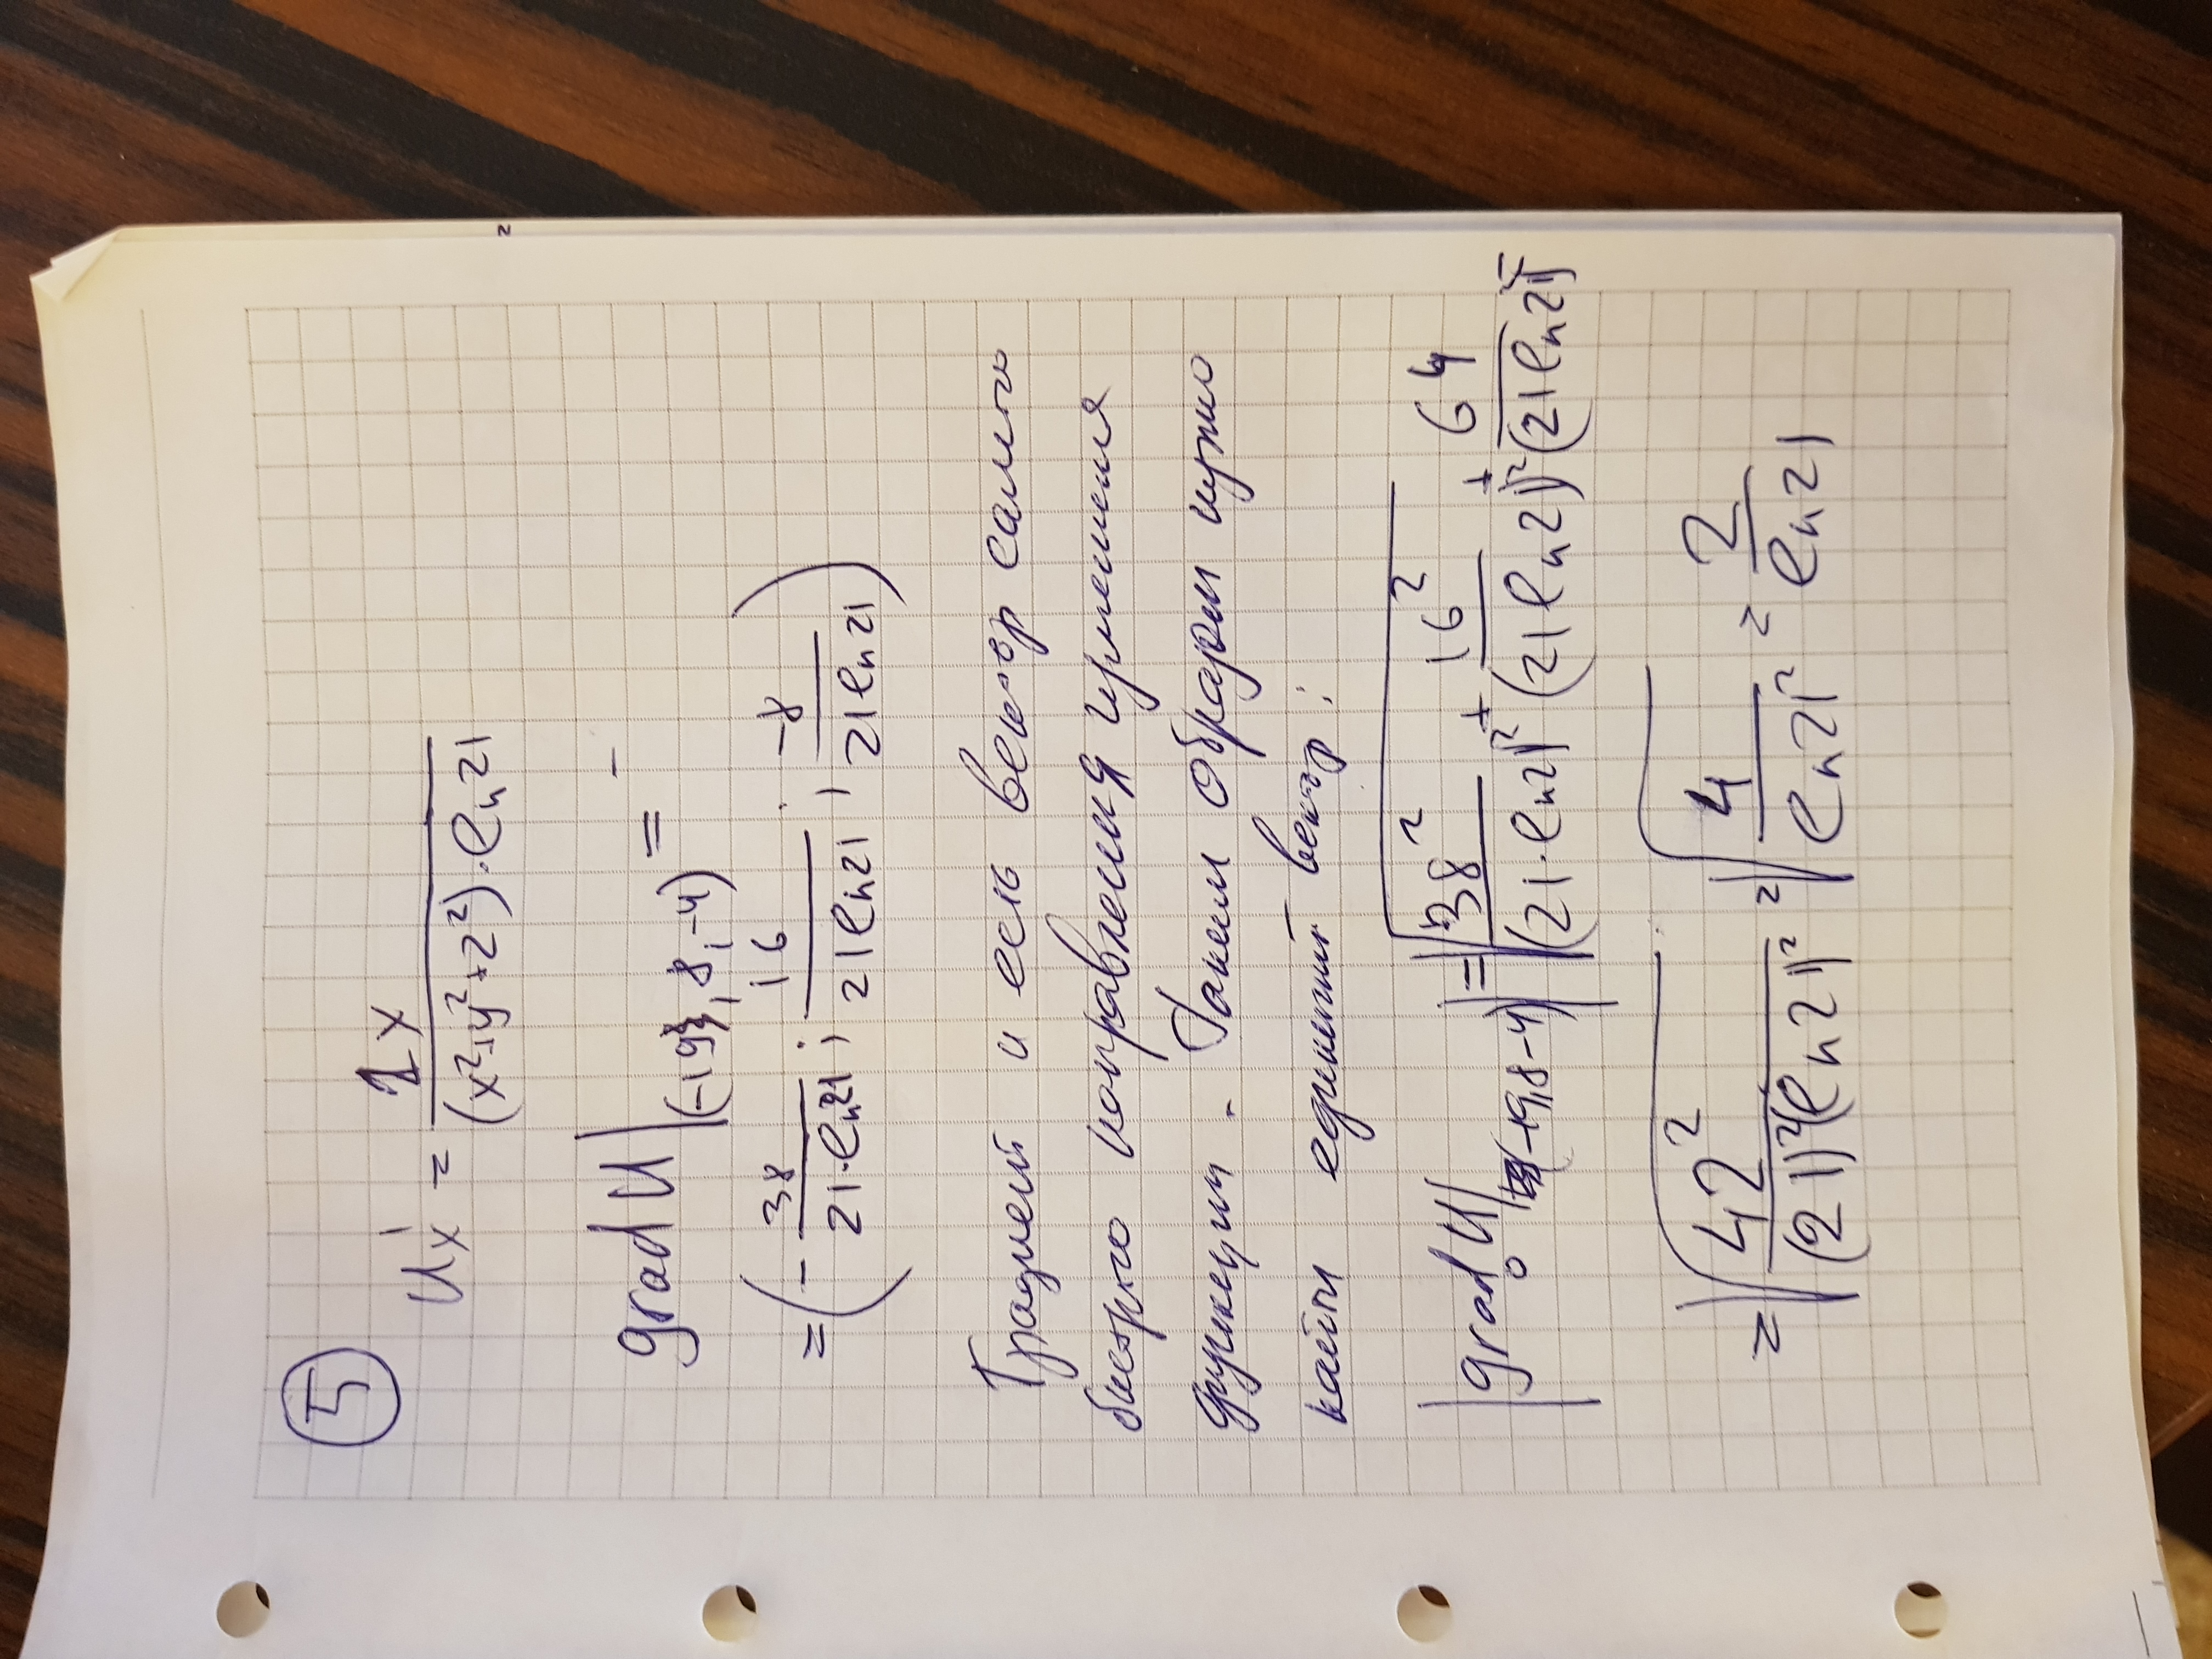 5
U'x = 2x / ((x²+y²+z²)·ln21)
grad U|(-19, 8, -4) = -
= (- 38 / (21·ln21) ; 16 / (21ln21) ; -8 / (21ln21))
Градиент и есть вектор самого
быстрого направления изменения
функции. Таким образом нужно
найти единичный вектор:
|grad U|(-19, 8 -4)| = √(38² / (21·ln21)² + 16² / (21ln21)² + 64 / (21ln21)²) =
= √(42² / ((21)²(ln21)²)) = √(4 / ln21²) = 2 / ln21